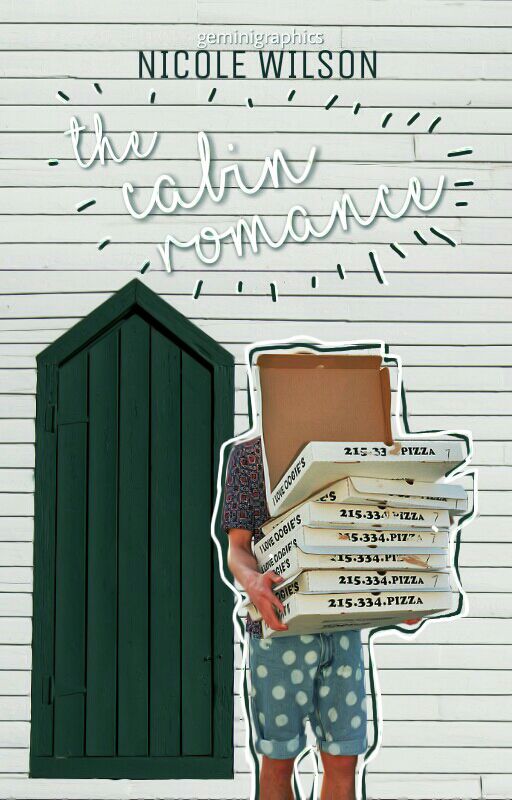 geminigraphics
NICOLE WILSON
the
cabin
romance
215.334.PIZZA
I LOVE OOGIE'S
215.334.PIZZA
I LOVE OOGIE'S
215.334.PIZZA
I LOVE OOGIE'S
215.334.PIZZA
215.334.PIZZA
215.334.PIZZA